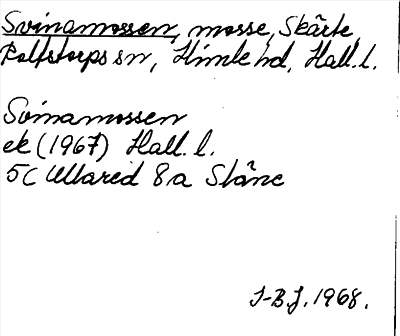 Svinamossen, mosse, Skärte,
Rolfstorps sn, Himle hd, Hall. l.
Svinamossen
ek (1967) Hall. l.
5C Ullared 8a Skäne
J-B.J. 1968.